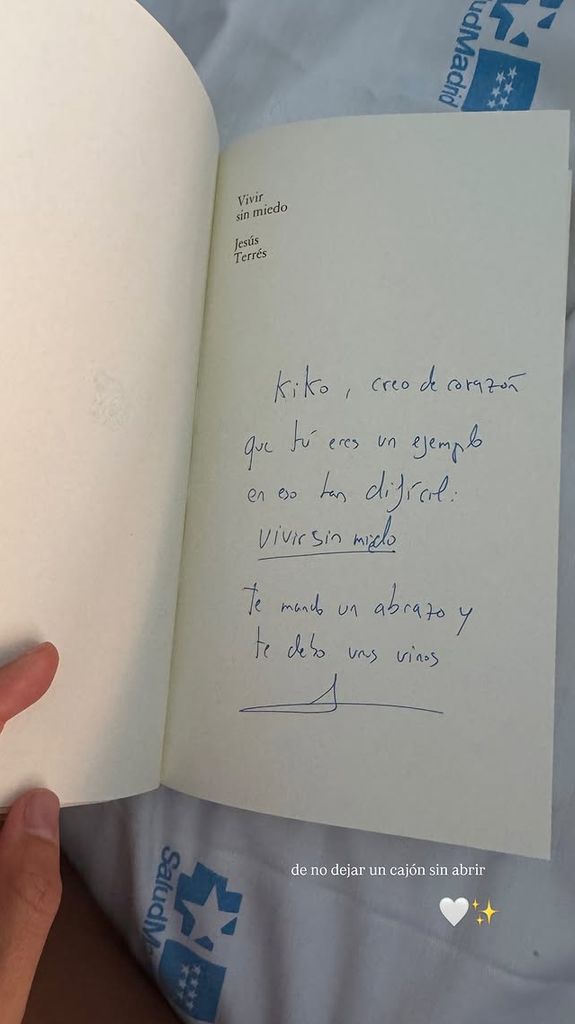 SaludMadrid
Vivir
sin miedo
Jesús
Terrés
Kiko, creo de corazón
que tú eres un ejemplo
en eso tan difícil:
vivir sin miedo
Te mando un abrazo y
te debo unos vinos
de no dejar un cajón sin abrir
🤍✨
SaludMa